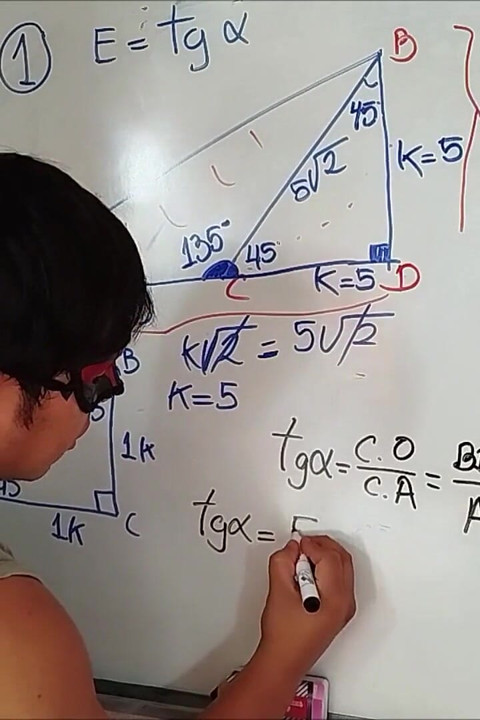 1 E = tg α
B
45
5√2
K=5
135° 45
C K=5 D
K√2 = 5√2
K=5
B
1K
45
1K C
tgα = C.O / C.A =
tgα = 5